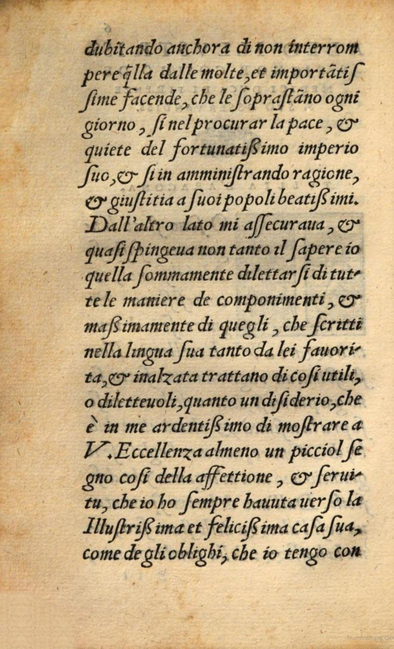 dubitando anchora di non interrom
pere q̃lla dalle molte, et importãtiſ
ſime facende, che le ſopraſtãno ogni
giorno, ſi nel procurar la pace, &
quiete del fortunatißimo imperio
ſuo, & ſi in amminiſtrando ragione,
& giuſtitia a ſuoi popoli beatißimi.
Dall'altro lato mi aſſecuraua, &
quaſi ſpingeua non tanto il ſapere io
quella ſommamente dilettarſi di tut-
te le maniere de componimenti, &
maßimamente di quegli, che ſcritti
nella lingua ſua tanto da lei fauori-
ta, & inalzata trattano di coſi utili,
o diletteuoli, quanto un diſiderio, che
è in me ardentißimo di moſtrare a
V. Eccellenza almeno un picciol ſe
gno coſi della affettione, & ſerui-
tu, che io ho ſempre hauuta uerſo la
Illuſtrißima et felicißima caſa ſua,
come de gli oblighi, che io tengo con